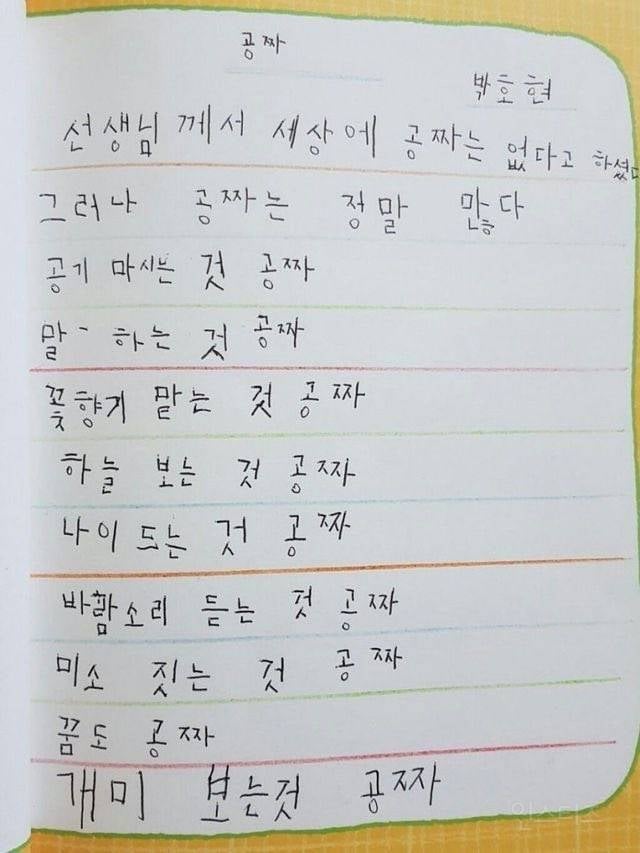 공짜
박호현
선생님 께서 세상에 공짜는 없다고 하셨다
그러나 공짜는 정말 많다
공기 마시는 것 공짜
말 - 하는 것 공짜
꽃향기 맡는 것 공짜
하늘 보는 것 공짜
나이 드는 것 공짜
바람소리 듣는 것 공짜
미소 짓는 것 공짜
꿈도 공짜
개미 보는것 공짜
인스티즈